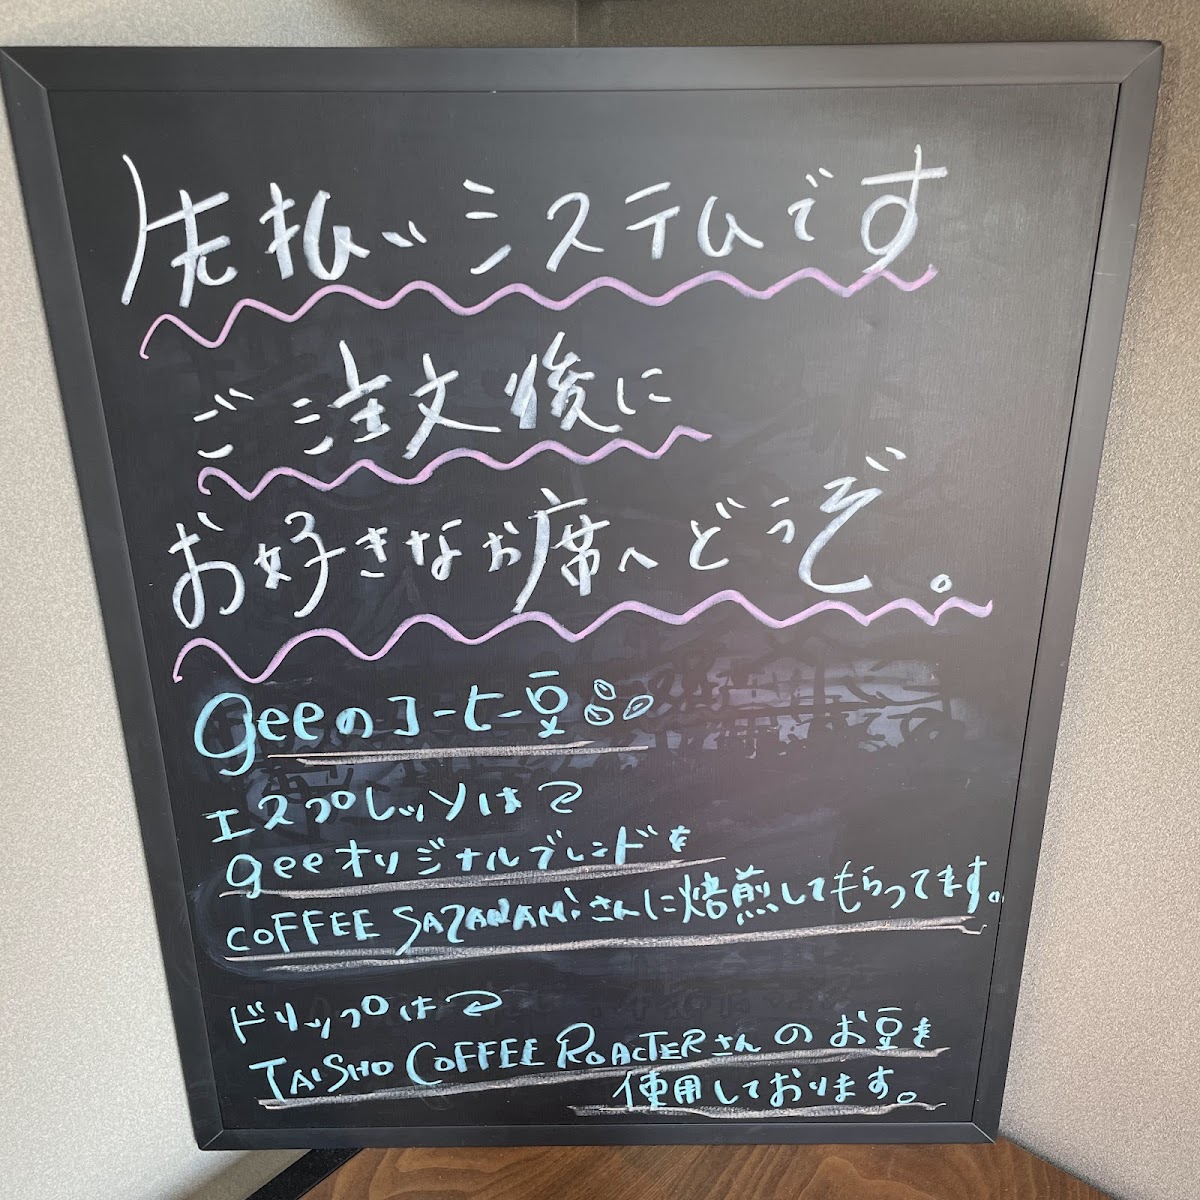 先払いシステムです
ご注文後に
お好きなお席へどうぞ。
geeのコーヒー豆
エスプレッソは
geeオリジナルブレンドを
COFFEE SAZANAMiさんに焙煎してもらってます。
ドリップは
TAiSHO COFFEE ROACTERさんのお豆を
使用しております。